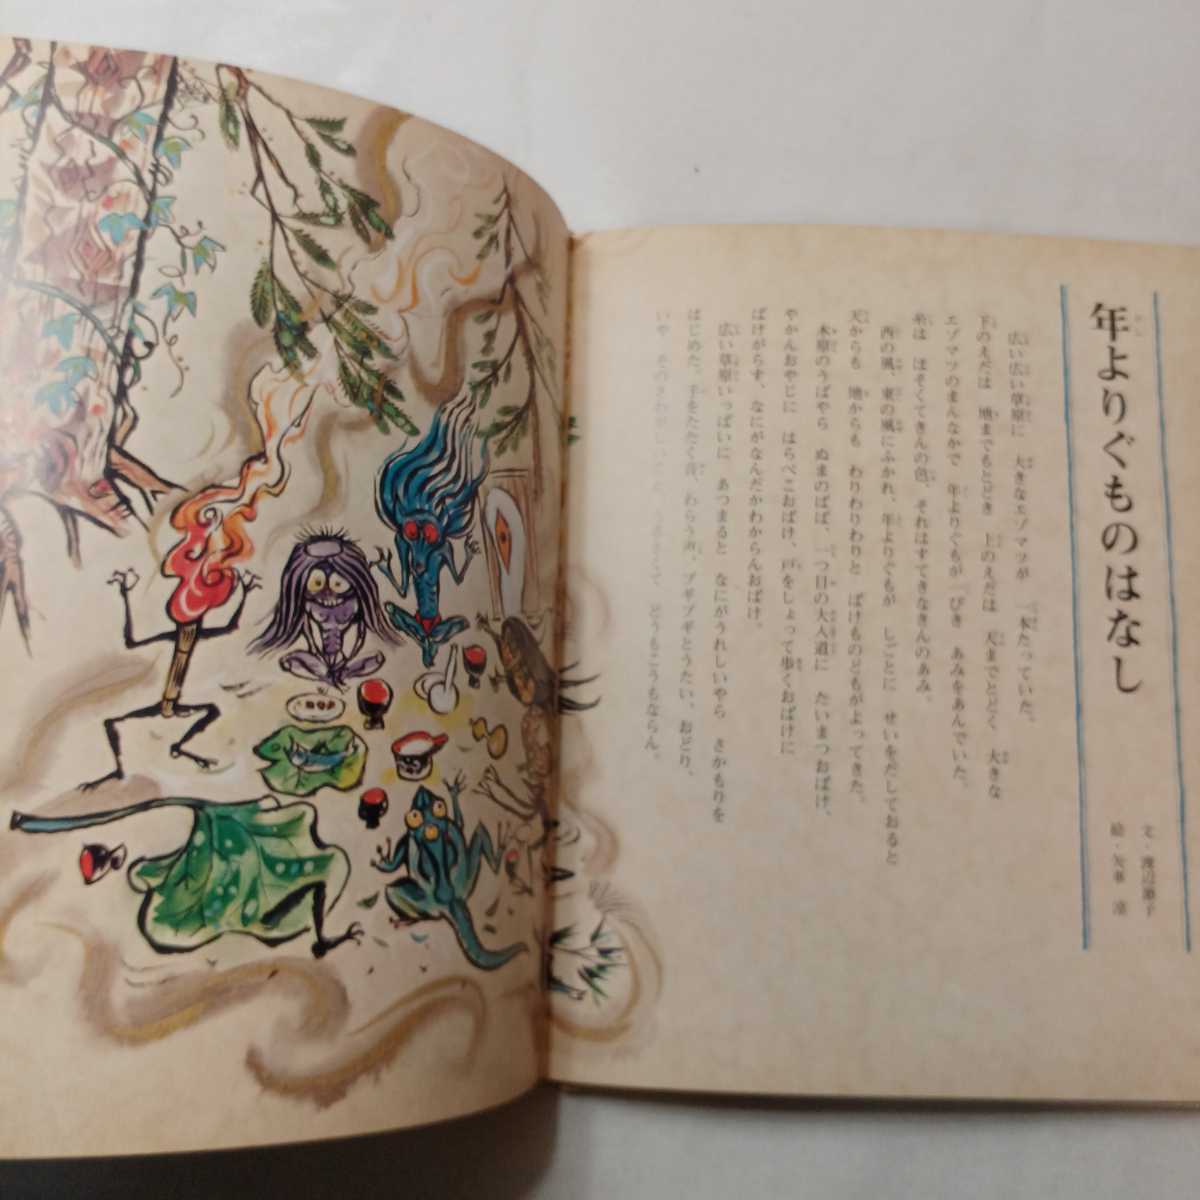 年よりぐものはなし
文・渡辺節子
絵・矢車 涼
広い広い草原に 大きなエゾマツが 一本たっていた。
下のえだは 地までもとどき 上のえだは 天までとどく、大きな
エゾマツのまんなかで 年よりぐもが 一ぴき あみをあんでいた。
糸は ほそくてきんの色、それはすてきなきんのあみ。
西の風、東の風にふかれ、年よりぐもが しごとに せいをだしておると
天からも 地からも わりわりわりと ばけものどもがよってきた。
木原のうばやら ぬまのばば、一つ目の大入道に たいまつおばけ、
やかんおやじに はらぺこおばけ、戸をしょって歩くおばけに
ばけがらす、なにがなんだかわからんおばけ。
広い草原いっぱいに あつまると なにがうれしいやら さかもりを
はじめた。手をたたく音、わらう声、ブギブギとうたい、おどり、
いや そのさわがしいこと、うるさくて どうもこうもならん。